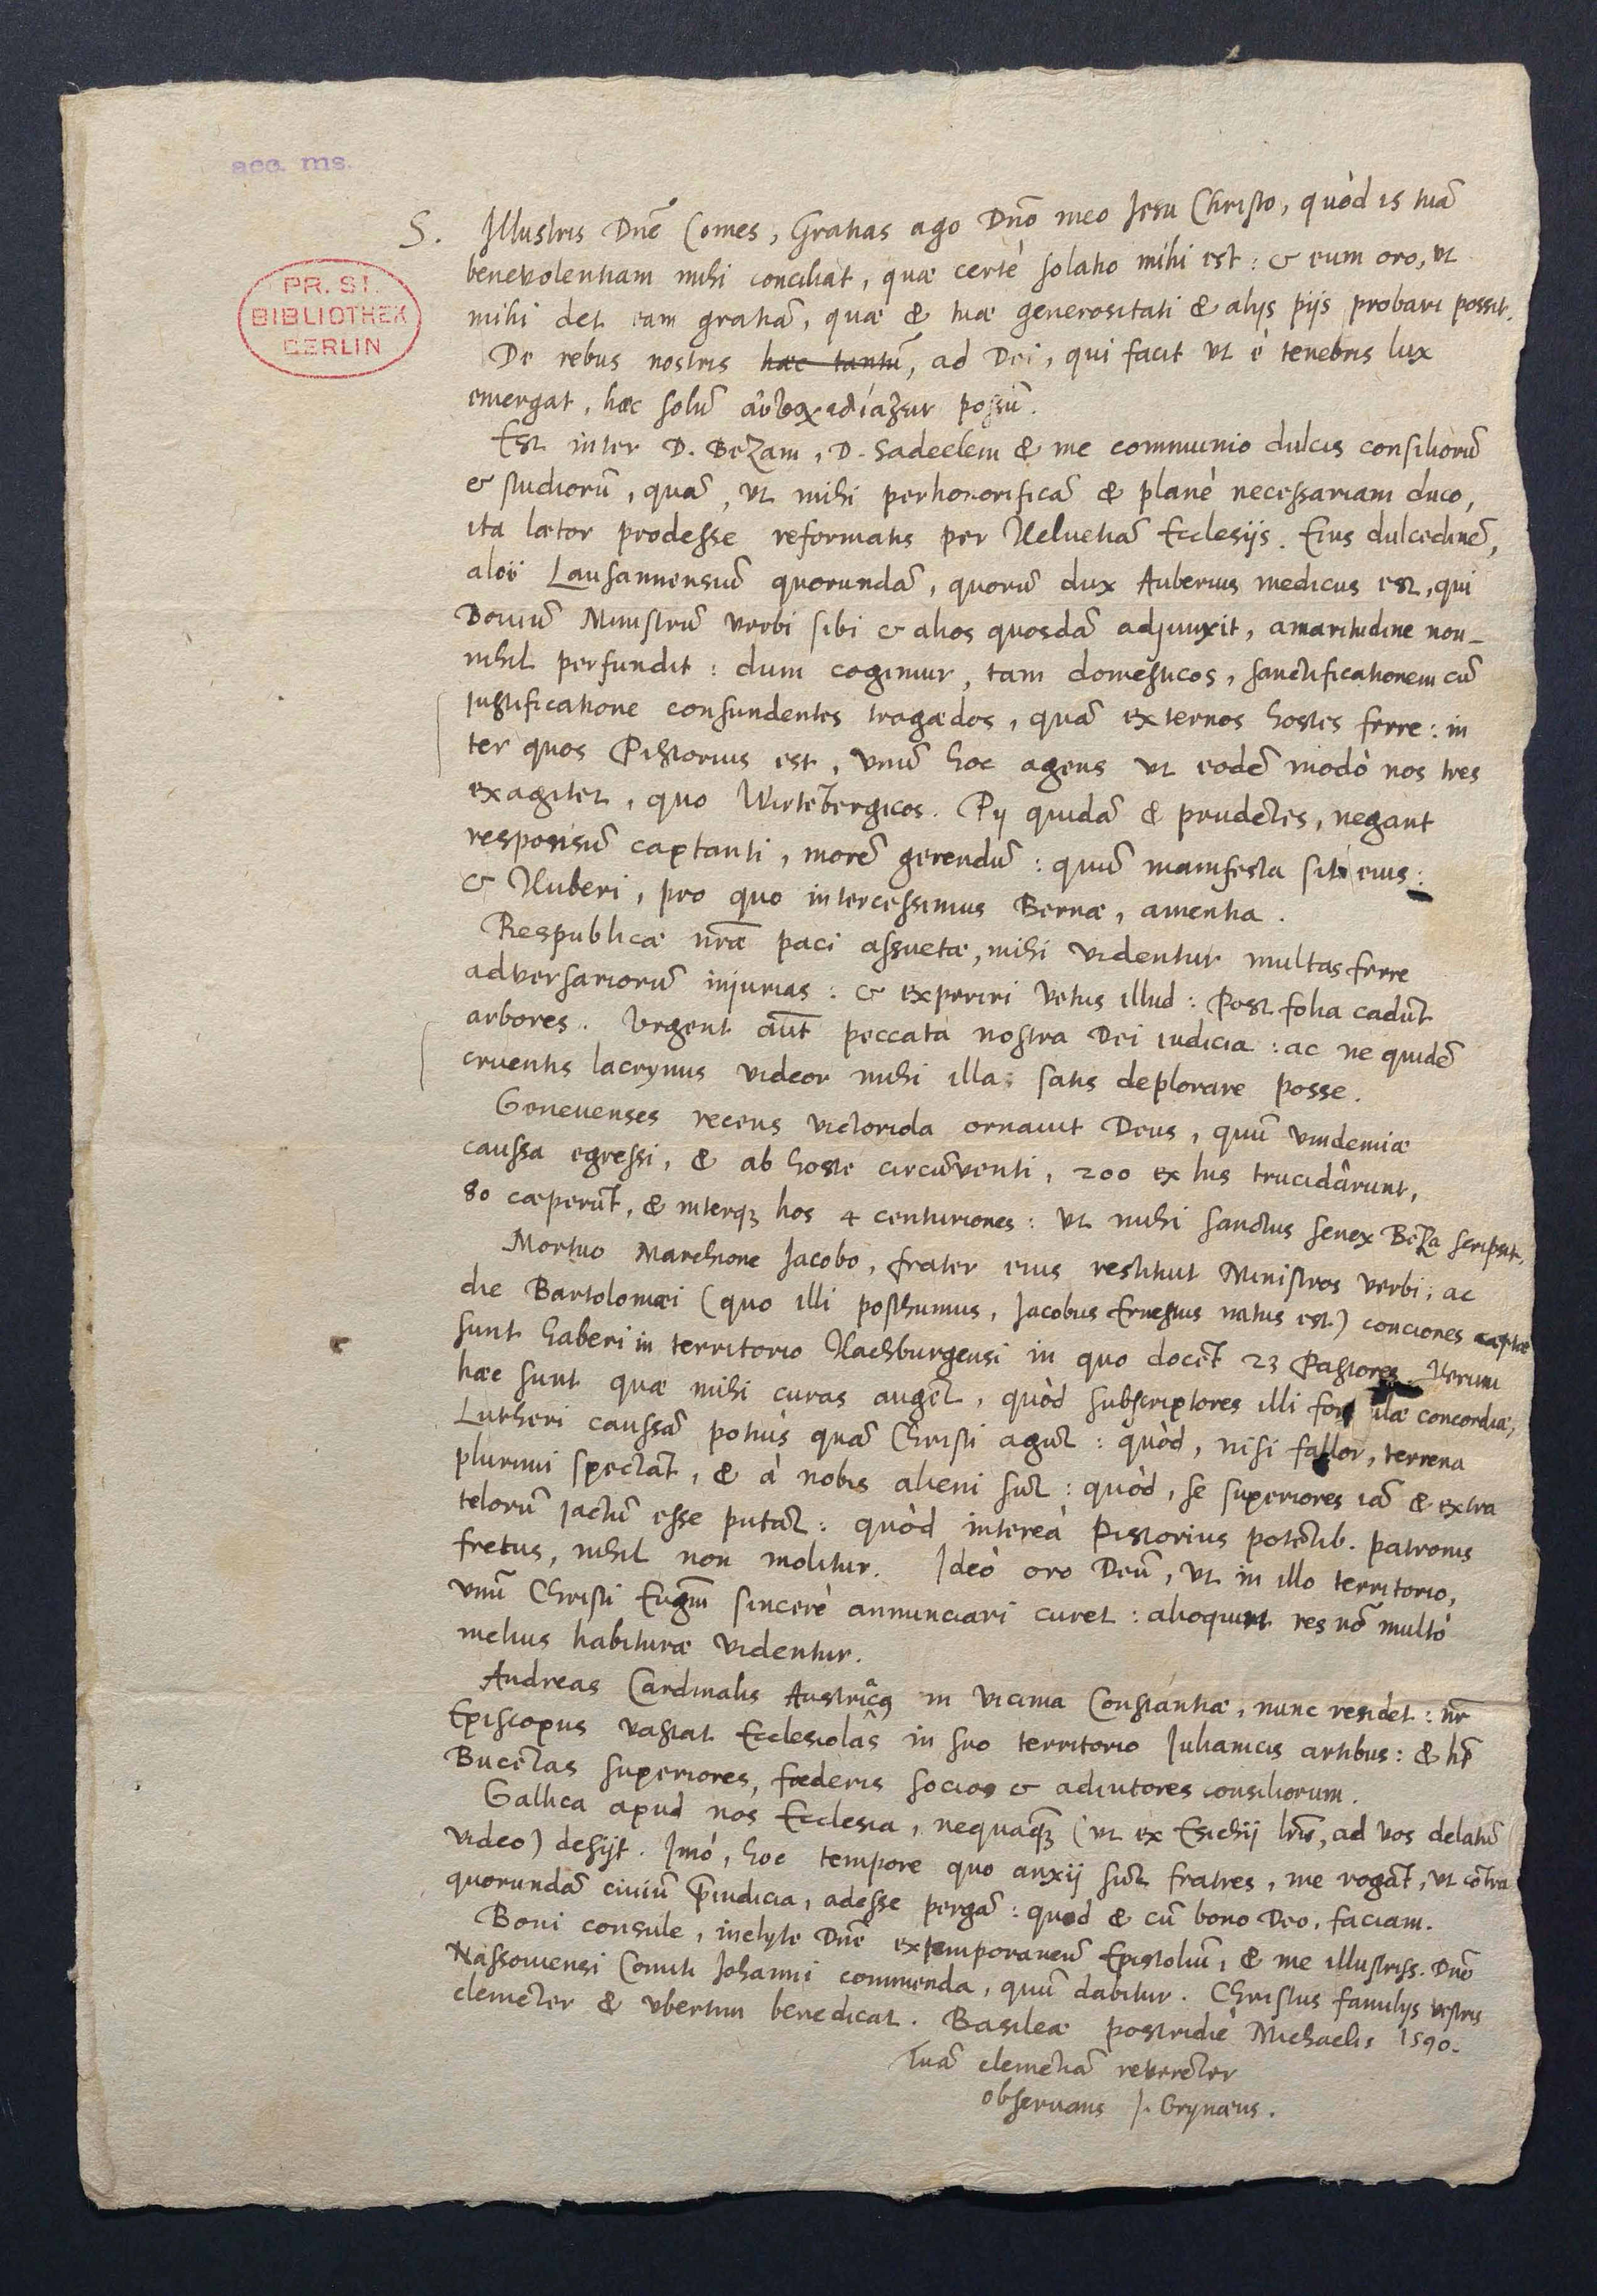 acc. ms.
PR. ST.
BIBLIOTHEK
BERLIN
S. Illustris Dnē Comes, Gratias ago Dnō meo Jesu Christo, quòd is tuā
benevolentiam mihi conciliat, quæ certè solatio mihi est: & eum oro, ut
mihi det eam gratiā, quæ & tuæ generositati & alijs pijs probari possit.
De rebus nostris haec tantū, ad Dei, qui facit ut è tenebris lux
emergat, hæc solū possū.
Est inter D. Bezam, D. Sadeelem & me communio dulcis consiliorū
& studiorū, quā, ut mihi perhonorificā & planè necessariam duco,
ita lætor prodesse reformatis per Helvetiā Ecclesijs. Eius dulcedinē,
aloë Lausannensiū quorundā, quorū dux Auberius medicus est, qui
Ministrū verbi sibi & alios quosdā adjunxit, amaritudine non-
nihil perfundit: dum cogimur, tam domesticos, sanctificationem cū
justificatione confundentes tragœdos, quā externos hostes ferre: in
ter quos Pistorius est, unū hoc agens ut eodē modò nos tres
exagitet, quo Wirtēbergicos. Pij quidā & prudētes, negant
responsū captanti, morē gerendū: quū manifesta sit eius:
& Huberi, pro quo intercessimus Bernæ, amentia.
Respublicæ nr̄æ paci assuetæ, mihi videntur multas ferre
adversariorū injurias: & experiri vetus illud: Post folia cadūt
arbores. Urgent aūt peccata nostra Dei iudicia: ac ne quidē
cruentis lacrymis videor mihi illa satis deplorare posse.
Genevenses recens victoriola ornavit Deus, quū vindemiæ
caussa egressi, & ab hoste circūventi, 200 ex his trucidârunt,
80 cæperūt, & interq; hos 4 centuriones: ut mihi sanctus senex Beza scripsit.
Mortuo Marchione Jacobo, frater eius restituit Ministros verbi; ac
die Bartolomæi (quo illi posthumus, Jacobus Ernestus natus est) conciones cæptæ
sunt haberi in territorio Hachburgensi in quo docēt 23 Pastores. Iterum
hæc sunt quæ mihi curas augēt, quòd subscriptores illi for ulæ concordiæ,
Lutheri caussā potiùs quā Christi agūt: quòd, nisi fallor, terrena
plurimi spectāt, & à nobis alieni sūt: quòd, se superiores iā & extra
telorū jactū esse putāt: quòd intereà Pistorius potētib. patronis
fretus, nihil non molitur. Ideò oro Deū, ut in illo territorio,
unū Christi Eugm̄ sincerè annunciari curet: alioquin res nō multò
melius habituræ videntur.
Andreas Cardinalis Austriac9 in vicinia Constantiæ, nunc residet: nr̄
Episcopus vastat Ecclesiolâs in suo territorio Iulianicis artibus: & hēt
superiores, fœderis socios & adiutores consiliorum.
Gallica apud nos Ecclesia, nequaq̄; (ut ex Esichij lrīs, ad vos delatū
video) desijt. Imò, hoc tempore quo anxij sūt fratres, me rogāt, ut cōtra
quorundā civiū p̄iudicia, adesse pergā: quod & cū bono Deo, faciam.
Boni consule, inclyte Dnē extemporaneū Epistoliū, & me illustriss. Dnō
Nassoviensi Comiti Johanni commenda, quū dabitur. Christus familijs vestris
clemēter & ubertim benedicat. Basileæ postridiè Michaelis 1590.
Tuā clemētiā reverēter
observans J. Grynæus.